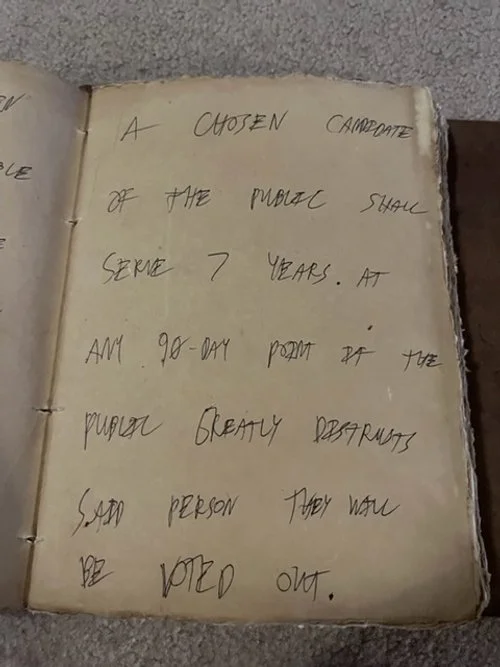 EN
BLE
E
A CHOSEN CANDIDATE
OF THE PUBLIC SHALL
SERVE 7 YEARS. AT
ANY 90-DAY POINT IF THE
PUBLIC GREATLY DISTRUSTS
SAID PERSON THEY WILL
BE VOTED OUT.